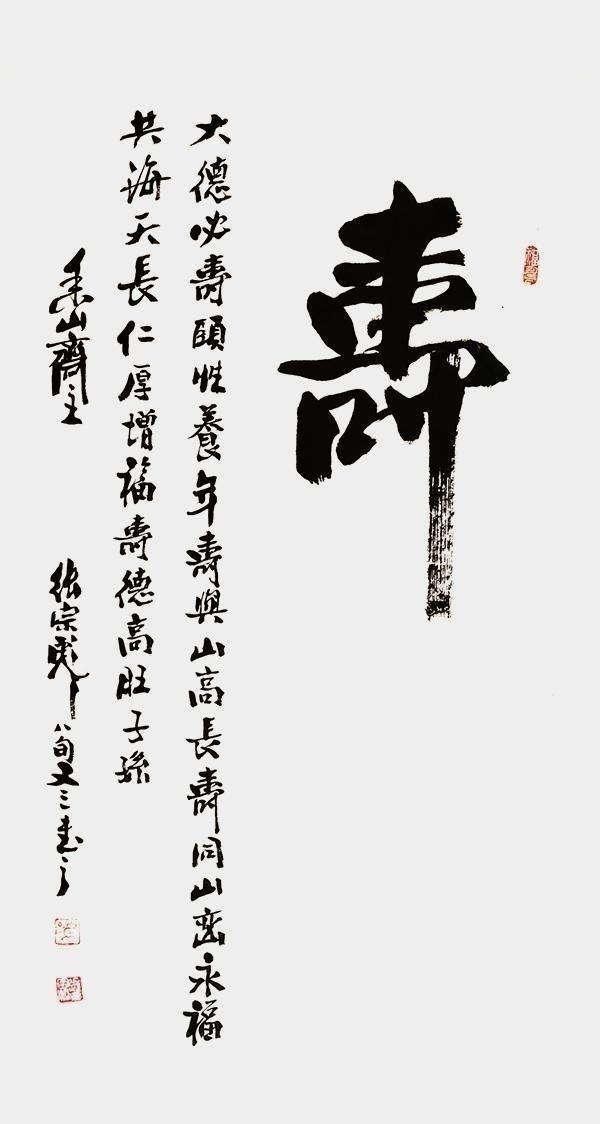 壽
大德必壽頤性養年壽與山高長壽同山巒永福
共海天長仁厚增福壽德高旺子孫
山齋主 張宗彪八旬又三書之